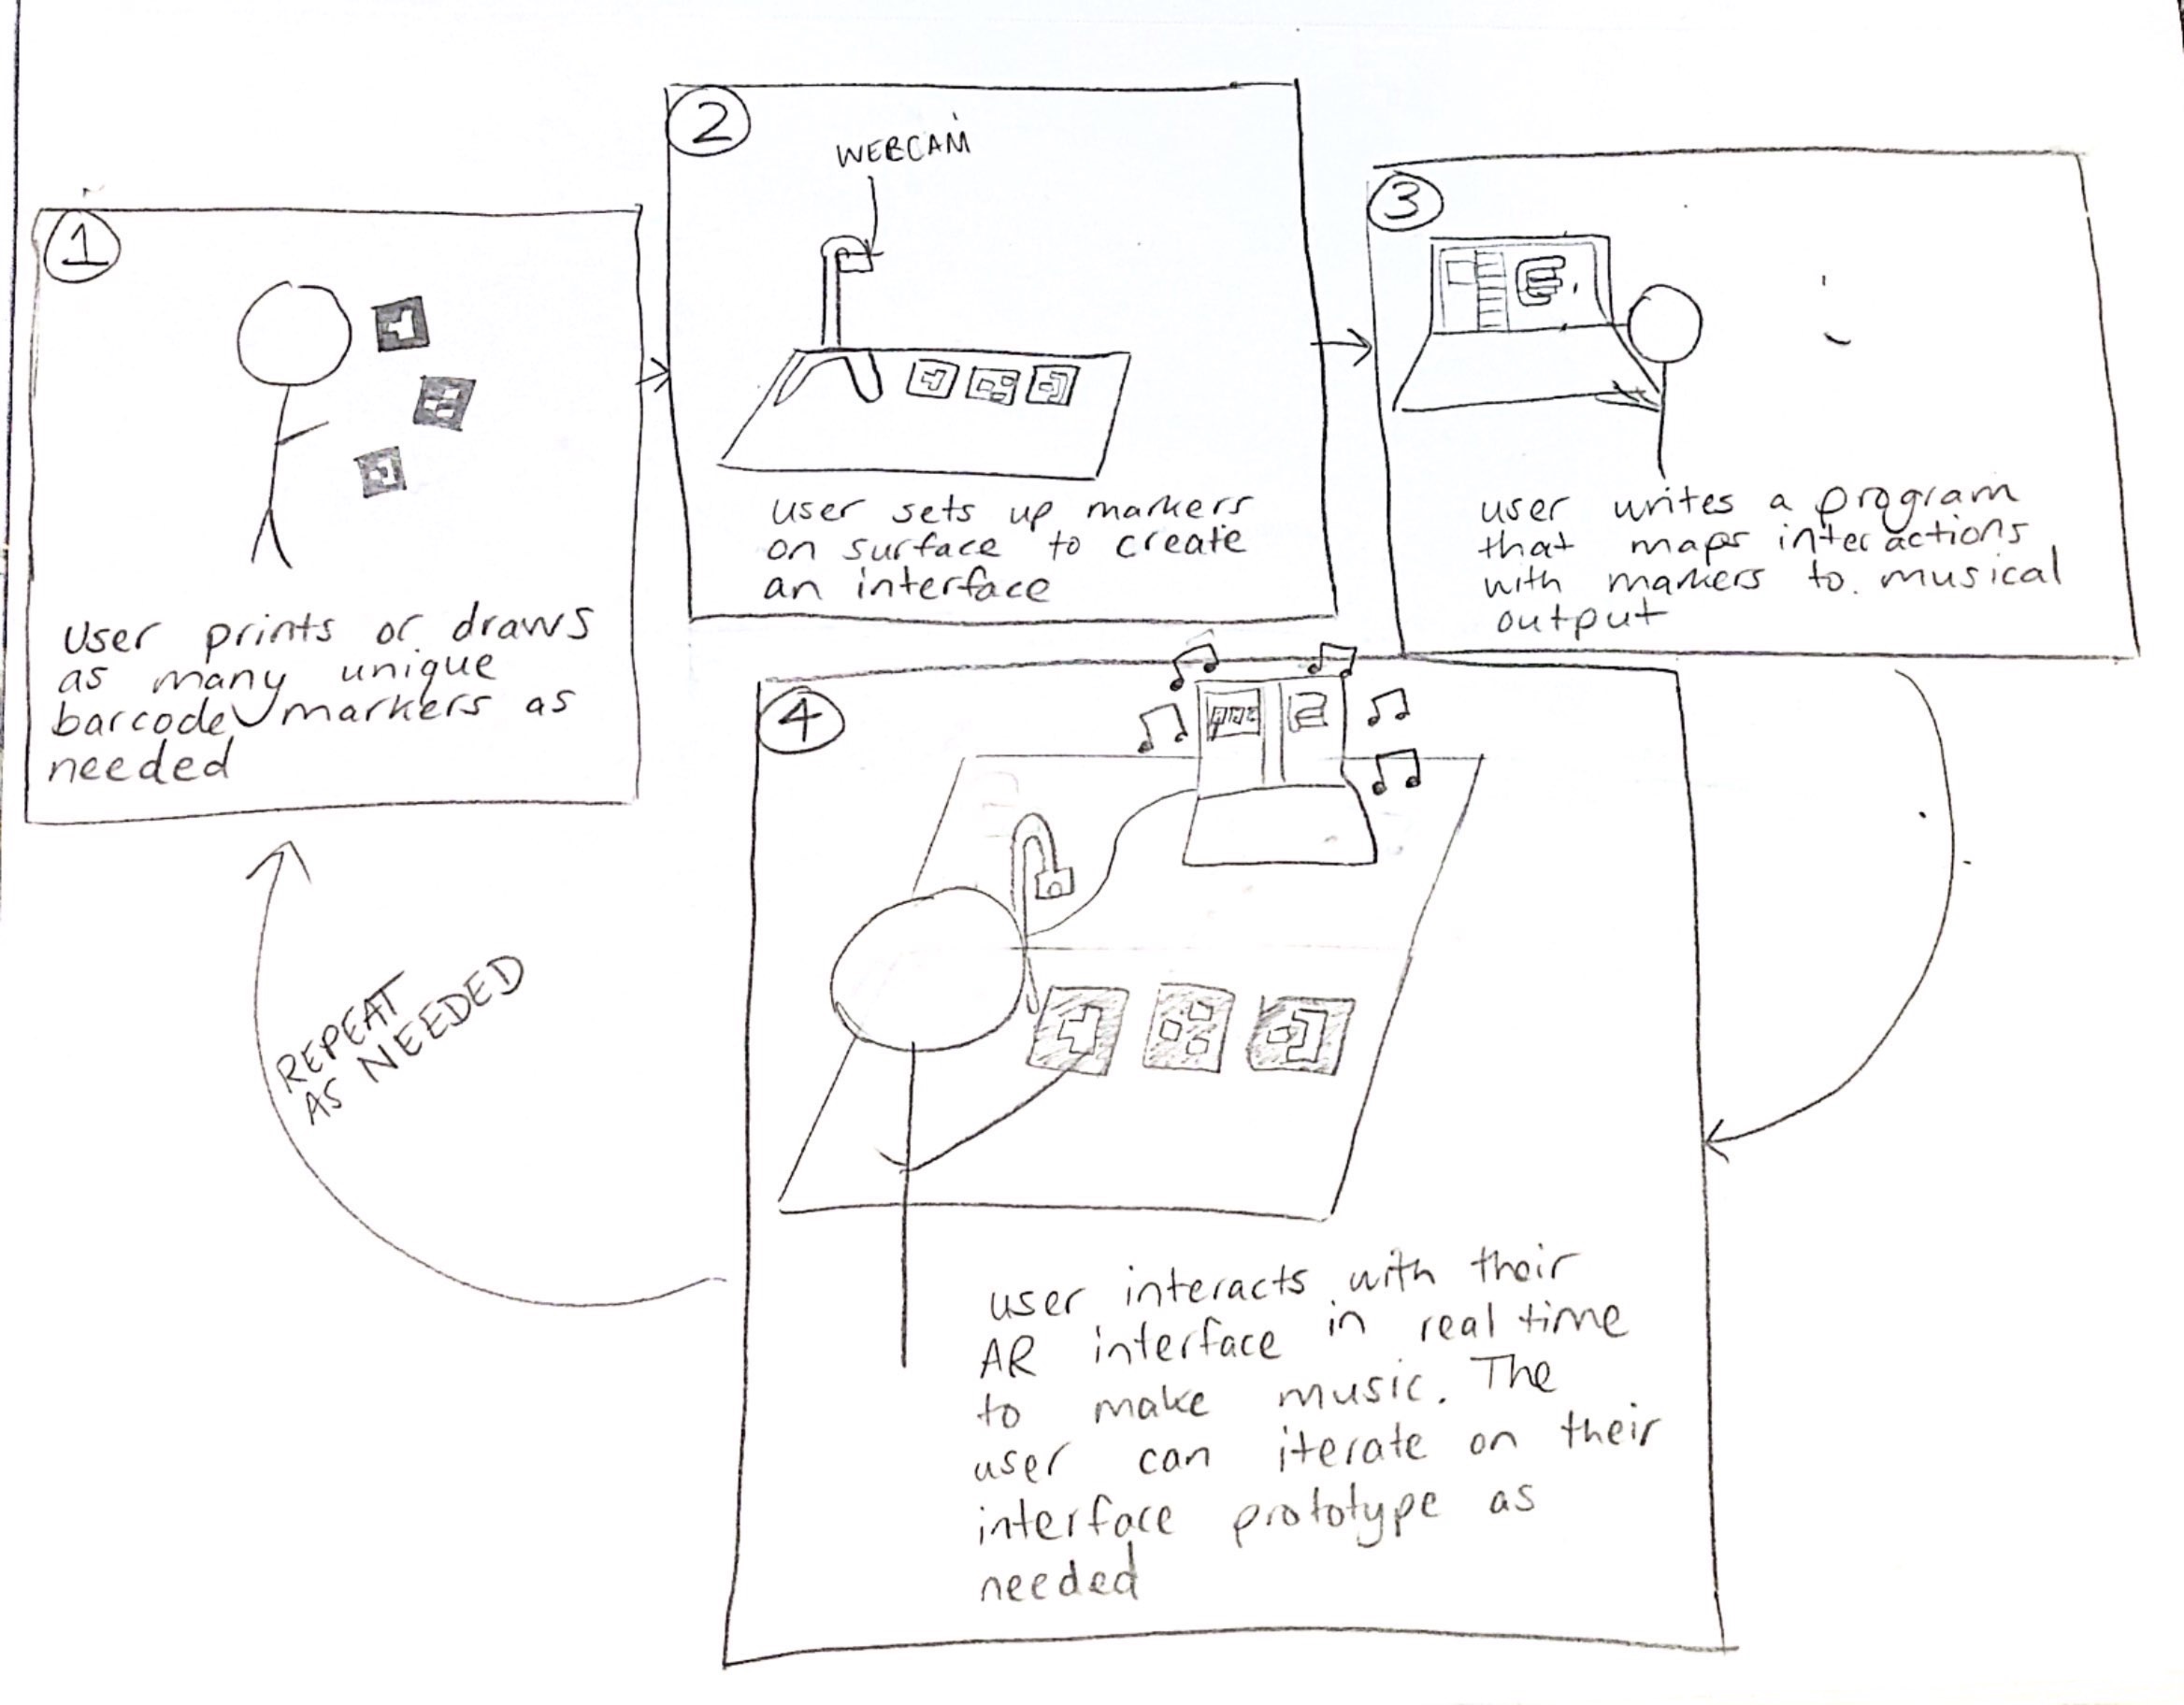 1
user prints or draws
as many unique
barcode markers as
needed
2
WEBCAM
user sets up markers
on surface to create
an interface
3
user writes a program
that maps interactions
with markers to musical
output
4
user interacts with their
AR interface in real time
to make music. The
user can iterate on their
interface prototype as
needed
REPEAT
AS NEEDED